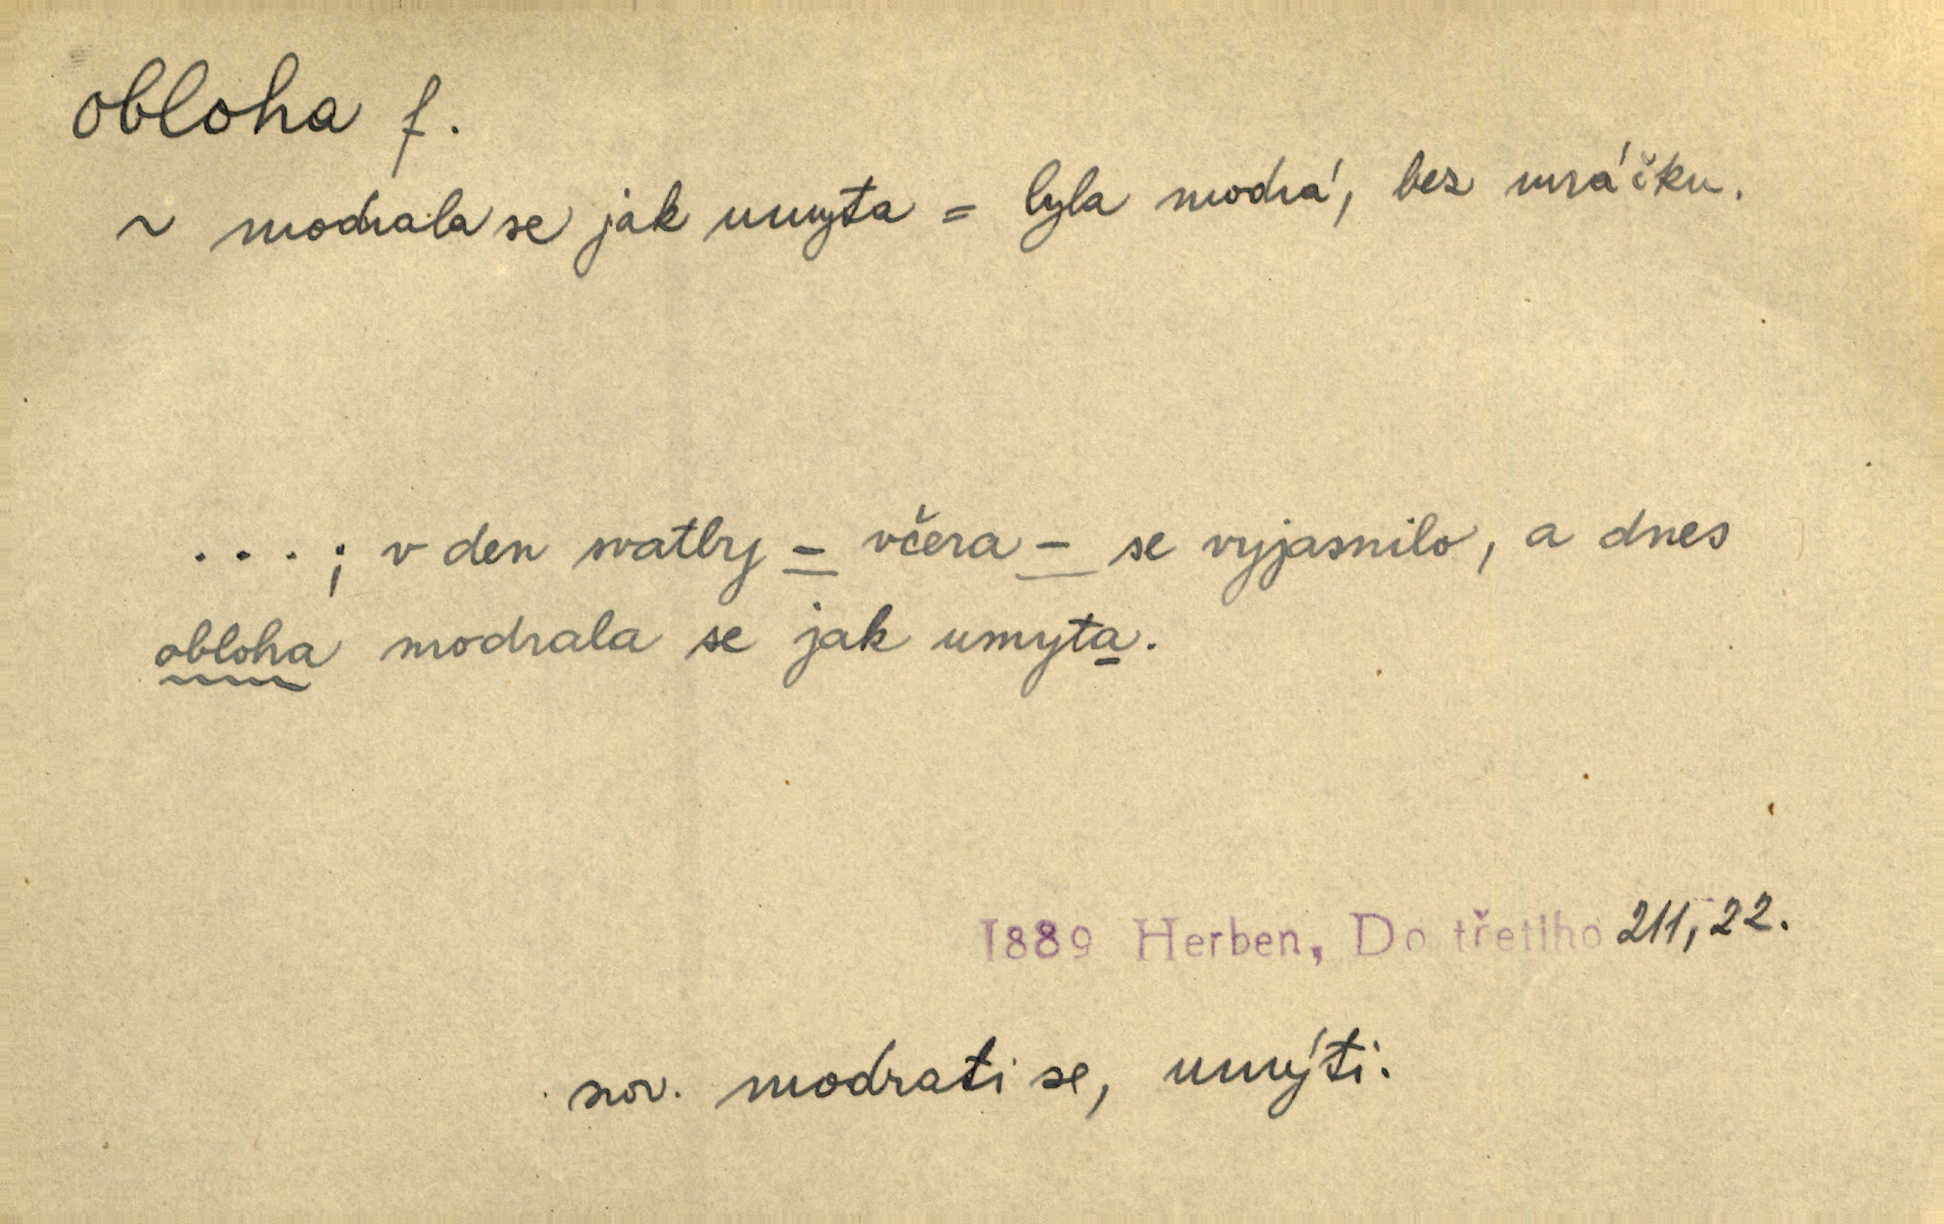 obloha f.
~ modrala se jak umyta = byla modrá, bez mráčku.
....; v den svatby – včera – se vyjasnilo, a dnes
obloha modrala se jak umyta.
1889 Herben, Do třetího 211, 22.
srov. modrati se, umýti.